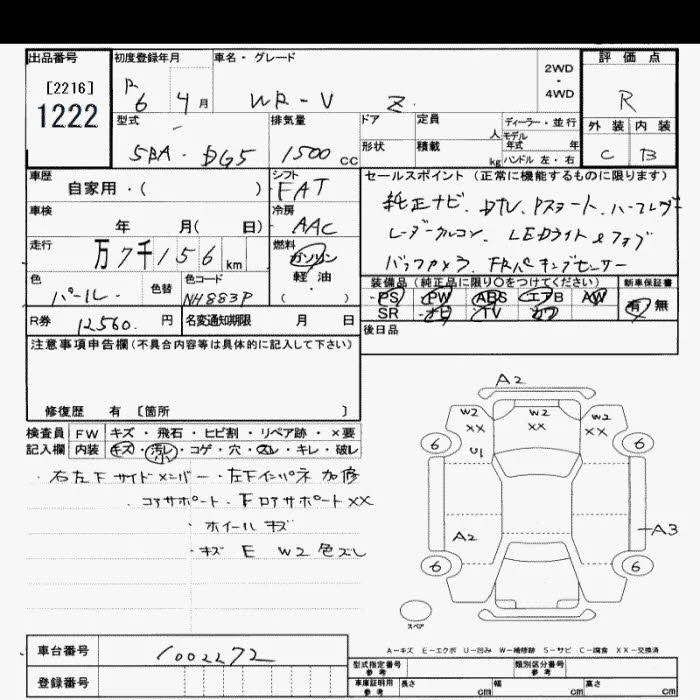 出品番号 初度登録年月 車名・グレード 2WD・4WD 評価点
[2216]
1222
R 6 4月 WR-V Z R
型式 排気量 ドア 定員 人 ディーラー・並行 外装 内装
5BA-DG5 1500cc 形状 積載 kg モデル年式 年 ハンドル 左・右 C B
車歴 シフト セールスポイント(正常に機能するものに限ります)
自家用・( ) FAT
純正ナビ、DTV、Pスタート、ハーフレザー
車検 冷房
年 月( 日) AAC
レーダークルコン、LEDライト&フォグ
走行 燃料
万7千156km ガソリン
バックカメラ、FR
色 色替 色コード 軽油
パール NH883P ・( )
装備品(純正品に限り○をつけてください) 新車保証書
PS PW ABS エアB AW 有 無
SR ナビ TV カワ
R券 12560円 名変通知期限 月 日
後日品
注意事項申告欄(不具合内容等は具体的に記入して下さい)
修復歴 有 [箇所 ]
検査員 FW キズ・飛石・ヒビ割・リペア跡・×要
記入欄 内装 キズ・汚レ・コゲ・穴・スレ・キレ・破レ
・右左下サイドメンバー・左下インパネ 加修
コアサポート・下コアサポートXX
・ホイールキズ
・キズ E W2 色ズレ
A2
W2 XX W2 XX W2 XX
6 U1 6
A2 A3
6 6
スペア
A-キズ E-エクボ U-凹み W-補修跡 S-サビ C-腐食 XX-交換済
車台番号 1002272
登録番号
型式指定番号 参考 類別区分番号 参考
車庫証明用 参考 長さ cm 幅 cm 高さ cm